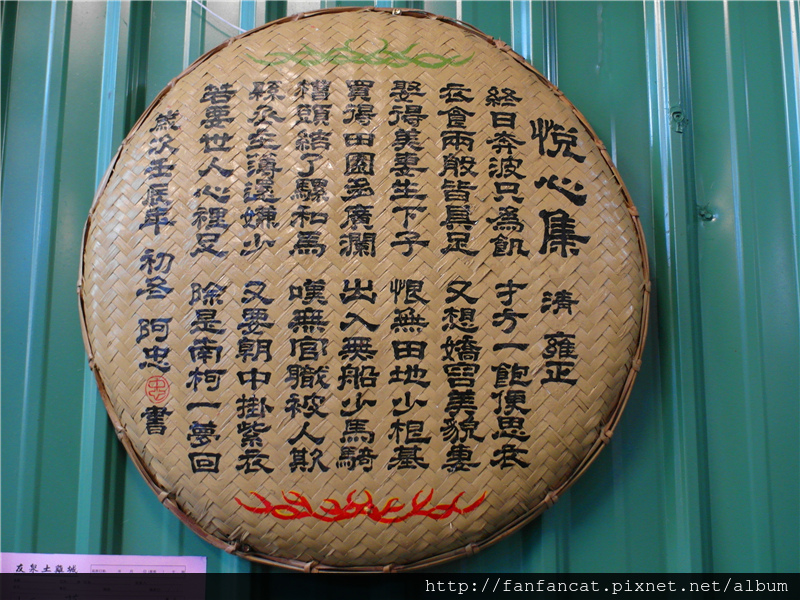 悅心集 清 雍正
終日奔波只為飢 才方一飽便思衣
衣食兩般皆具足 又想嬌容美貌妻
娶得美妻生下子 恨無田地少根基
買得田園多廣濶 出入無船少馬騎
槽頭結了騾和馬 嘆無官職被人欺
縣丞主薄還嫌少 又要朝中掛紫衣
若要世人心裡足 除是南柯一夢回
歲次壬辰年 初冬 阿忠 忠 書
友泉土雞城
http://fanfancat.pixnet.net/album